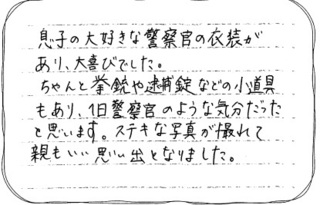 息子の大好きな警察官の衣装が
あり、大喜びでした。
ちゃんと拳銃や逮捕錠などの小道具
もあり、1日警察官のような気分だった
と思います。ステキな写真が撮れて
親もいい思い出となりました。